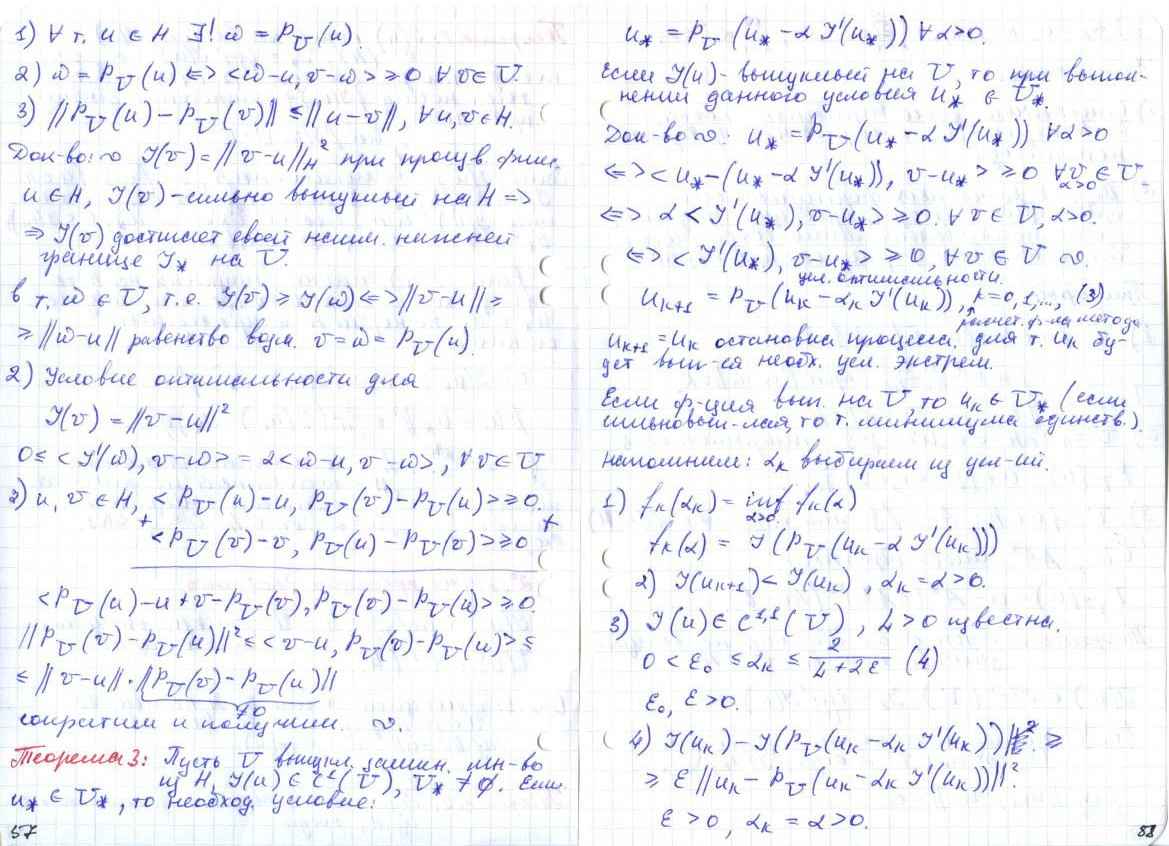 1) ∀ т. u ∈ H ∃! ω = P_U(u).
2) ω = P_U(u) <=> <ω-u, v-ω> ≥ 0 ∀v ∈ U.
3) ||P_U(u) - P_U(v)|| ≤ ||u-v||, ∀u,v ∈ H.
Док-во: ∾ J(v) = ||v-u||_H² при произв. фикс.
u ∈ H, J(v) - сильно выпуклый на H =>
=> J(v) достигает своей наим. нижней
границе J* на U.
в т. ω ∈ U, т.е. J(v) ≥ J(ω) <=> ||v-u|| ≥
≥ ||ω-u|| равенство возм. v = ω = P_U(u).
2) Условие оптимальности для
J(v) = ||v-u||²
0 ≤ <J'(ω), v-ω> = 2<ω-u, v-ω>, ∀v ∈ U
3) u, v ∈ H, <P_U(u)-u, P_U(v)-P_U(u)> ≥ 0.
+ <P_U(v)-v, P_U(u)-P_U(v)> ≥ 0 +
<P_U(u)-u+v-P_U(v), P_U(v)-P_U(u)> ≥ 0.
||P_U(v)-P_U(u)||² ≤ <v-u, P_U(v)-P_U(u)> ≤
≤ ||v-u||·||P_U(v)-P_U(u)||
≠0
сократим и получим. ∾.
Теорема 3: Пусть U выпукл. замкн. мн-во
из H, J(u) ∈ C¹(U), U* ≠ ∅. Если
u* ∈ U*, то необход. условие:
57
u* = P_U(u* - αJ'(u*)) ∀α>0.
Если J(u) - выпуклый на U, то при выпол-
нении данного условия u* ∈ U*.
Док-во ∾: u* = P_U(u* - αJ'(u*)) ∀α>0
<=> <u* - (u* - αJ'(u*)), v-u*> ≥ 0 ∀v ∈ U, α>0
<=> α<J'(u*), v-u*> ≥ 0. ∀v ∈ U, α>0.
<=> <J'(u*), v-u*> ≥ 0, ∀v ∈ U ∾.
усл. оптимальности.
u_{k+1} = P_U(u_k - α_k J'(u_k)), k=0,1,..., (3)
расчет. ф-ла метода.
u_{k+1} = u_k остановка процесса. для т. u_k бу-
дет вып-ся необх. усл. экстрем.
Если ф-ция вып. на U, то u_k ∈ U* (если
сильновып-лая, то т. минимума единств.).
напомним: α_k выбираем из усл-ий.
1) f_k(α_k) = inf_{α>0} f_k(α)
f_k(α) = J(P_U(u_k - αJ'(u_k)))
2) J(u_{k+1}) < J(u_k), α_k = α > 0.
3) J(u) ∈ C^{1,1}(U), L>0 известна.
0 < ε₀ ≤ α_k ≤ 2/(L+2ε) (4)
ε₀, ε > 0.
4) J(u_k) - J(P_U(u_k - α_k J'(u_k))) ≥
≥ ε||u_k - P_U(u_k - α_k J'(u_k))||².
ε > 0, α_k = α > 0.
58